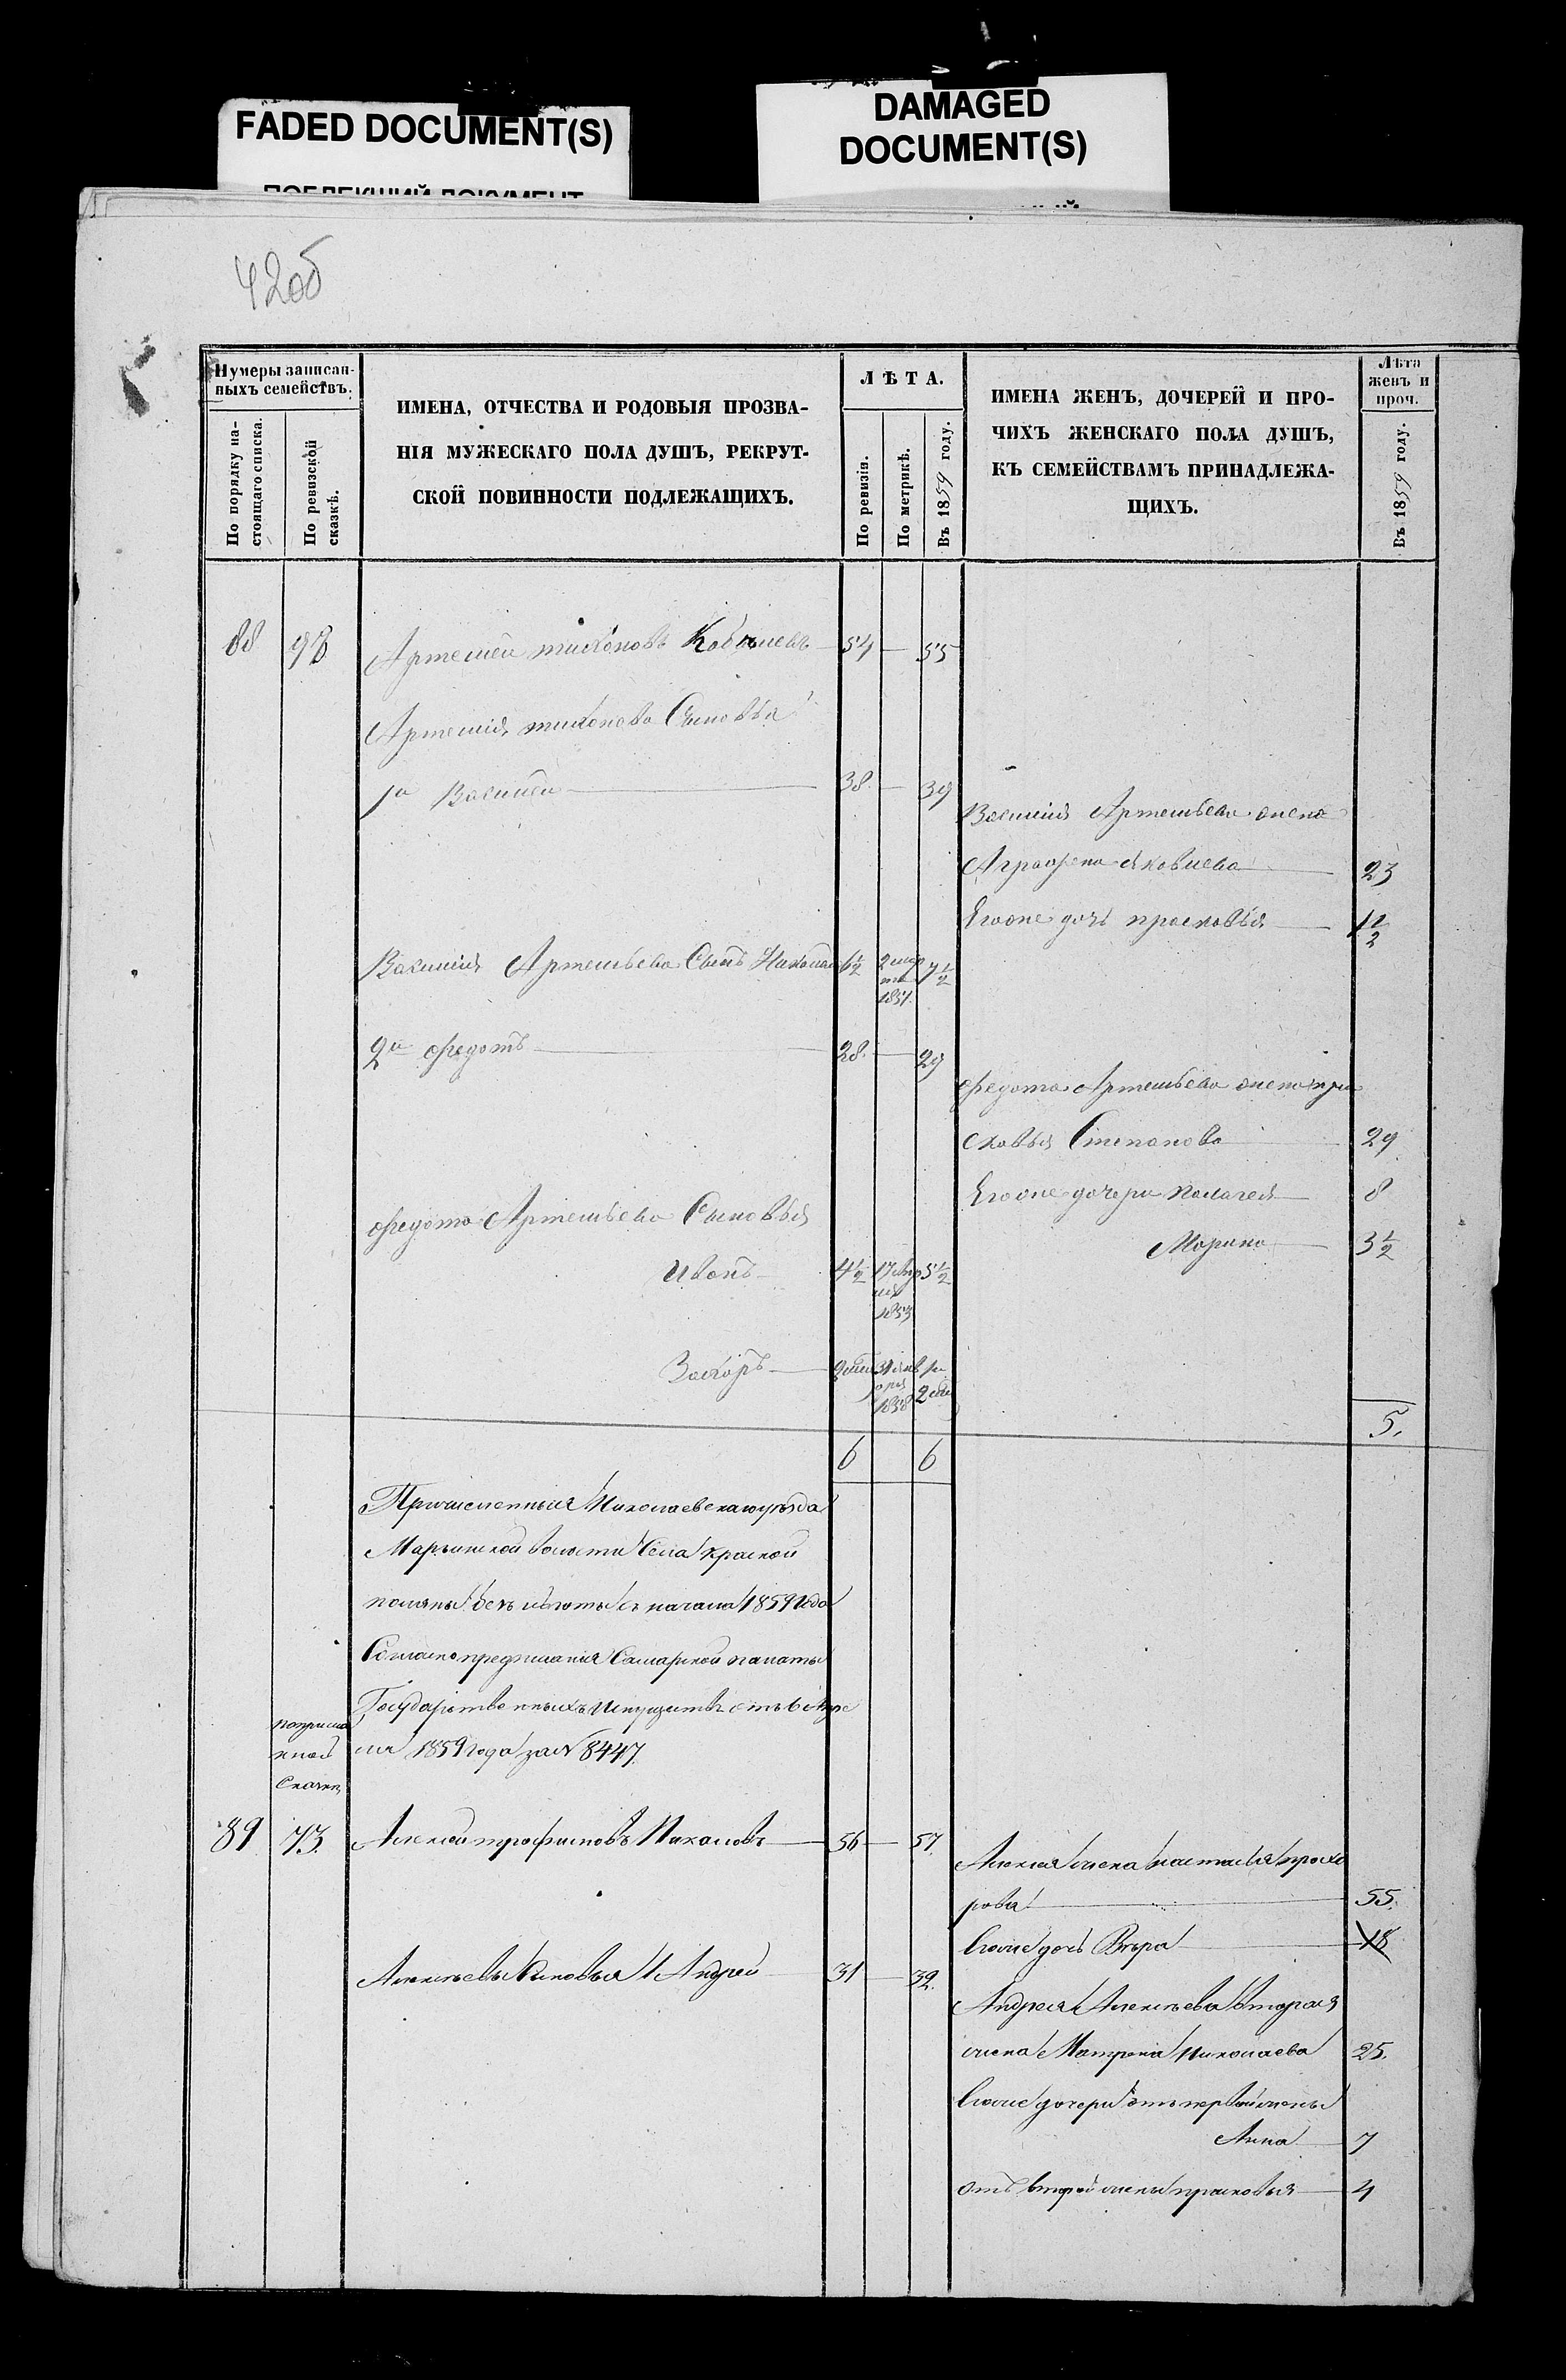 FADED DOCUMENT(S)
DAMAGED
DOCUMENT(S)
42об
Нумеры записан-
ныхъ семействъ.
По порядку на-
стоящаго списка.
По ревизской
сказкѣ.
ИМЕНА, ОТЧЕСТВА И РОДОВЫЯ ПРОЗВА-
НІЯ МУЖЕСКАГО ПОЛА ДУШЪ, РЕКРУТ-
СКОЙ ПОВИННОСТИ ПОДЛЕЖАЩИХЪ.
ЛѢТА.
По ревизіи.
По метрикѣ.
Въ 1859 году.
ИМЕНА ЖЕНЪ, ДОЧЕРЕЙ И ПРО-
ЧИХЪ ЖЕНСКАГО ПОЛА ДУШЪ,
КЪ СЕМЕЙСТВАМЪ ПРИНАДЛЕЖА-
ЩИХЪ.
Лѣта
женъ и
проч.
Въ 1859 году.
88 98 Артемей тихоновъ 54 55
Артемія тихонова Сыновья
1й Василей 38. 39
Василія Артемьева жена
Аграфена яковлева 23
Егоже дочь прасковья 1 1/2
Василія Артемьева Сынъ Николай 6 1/2 7 1/2
2й Федотъ 28. 29
Федота Артемьева жена пра
сковья Степанова 29
Егоже дочери Палагея 8
Федота Артемьева Сыновья
Марина 3 1/2
Иванъ 4 1/2 17 апре
ля
1853 5 1/2
Захаръ 1858
5.
6 6
Причисленныя Николаевскаго уѣзда
Марьинской волости Села Красной
поляны безъ льготы съ начала 1859 года
Согласно предписания Самарской палаты
Государственныхъ Имуществъ отъ 6 Апре
ля 1859 года за № 8447.
Сказки
89 73. Алексей трофимовъ 56 57.
Алексея жена настасья прохо
рова 55.
Егоже дочь Вѣра 18
Алексѣевы Сыновья 1 Андрей 31 32.
Андрея Алексѣева вторая
жена Матрена Николаева 25.
Егоже дочери отъ первой жены
Анна 7
отъ второй жены прасковья 4